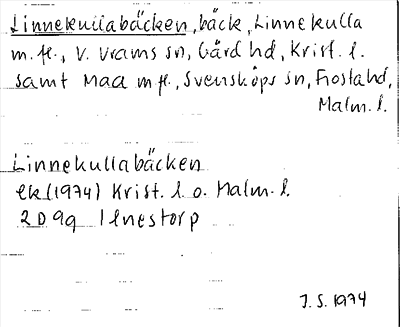 Linnekullabäcken, bäck, Linnekulla
m.fl., V. Vrams sn, Gärd hd, Krist. l.
samt Maa m fl., Svensköps sn, Frosta hd,
Malm. l.
Linnekullabäcken
ek (1974) Krist. l o. Malm. l.
2 D 9g Ilnestorp
J. S. 1974